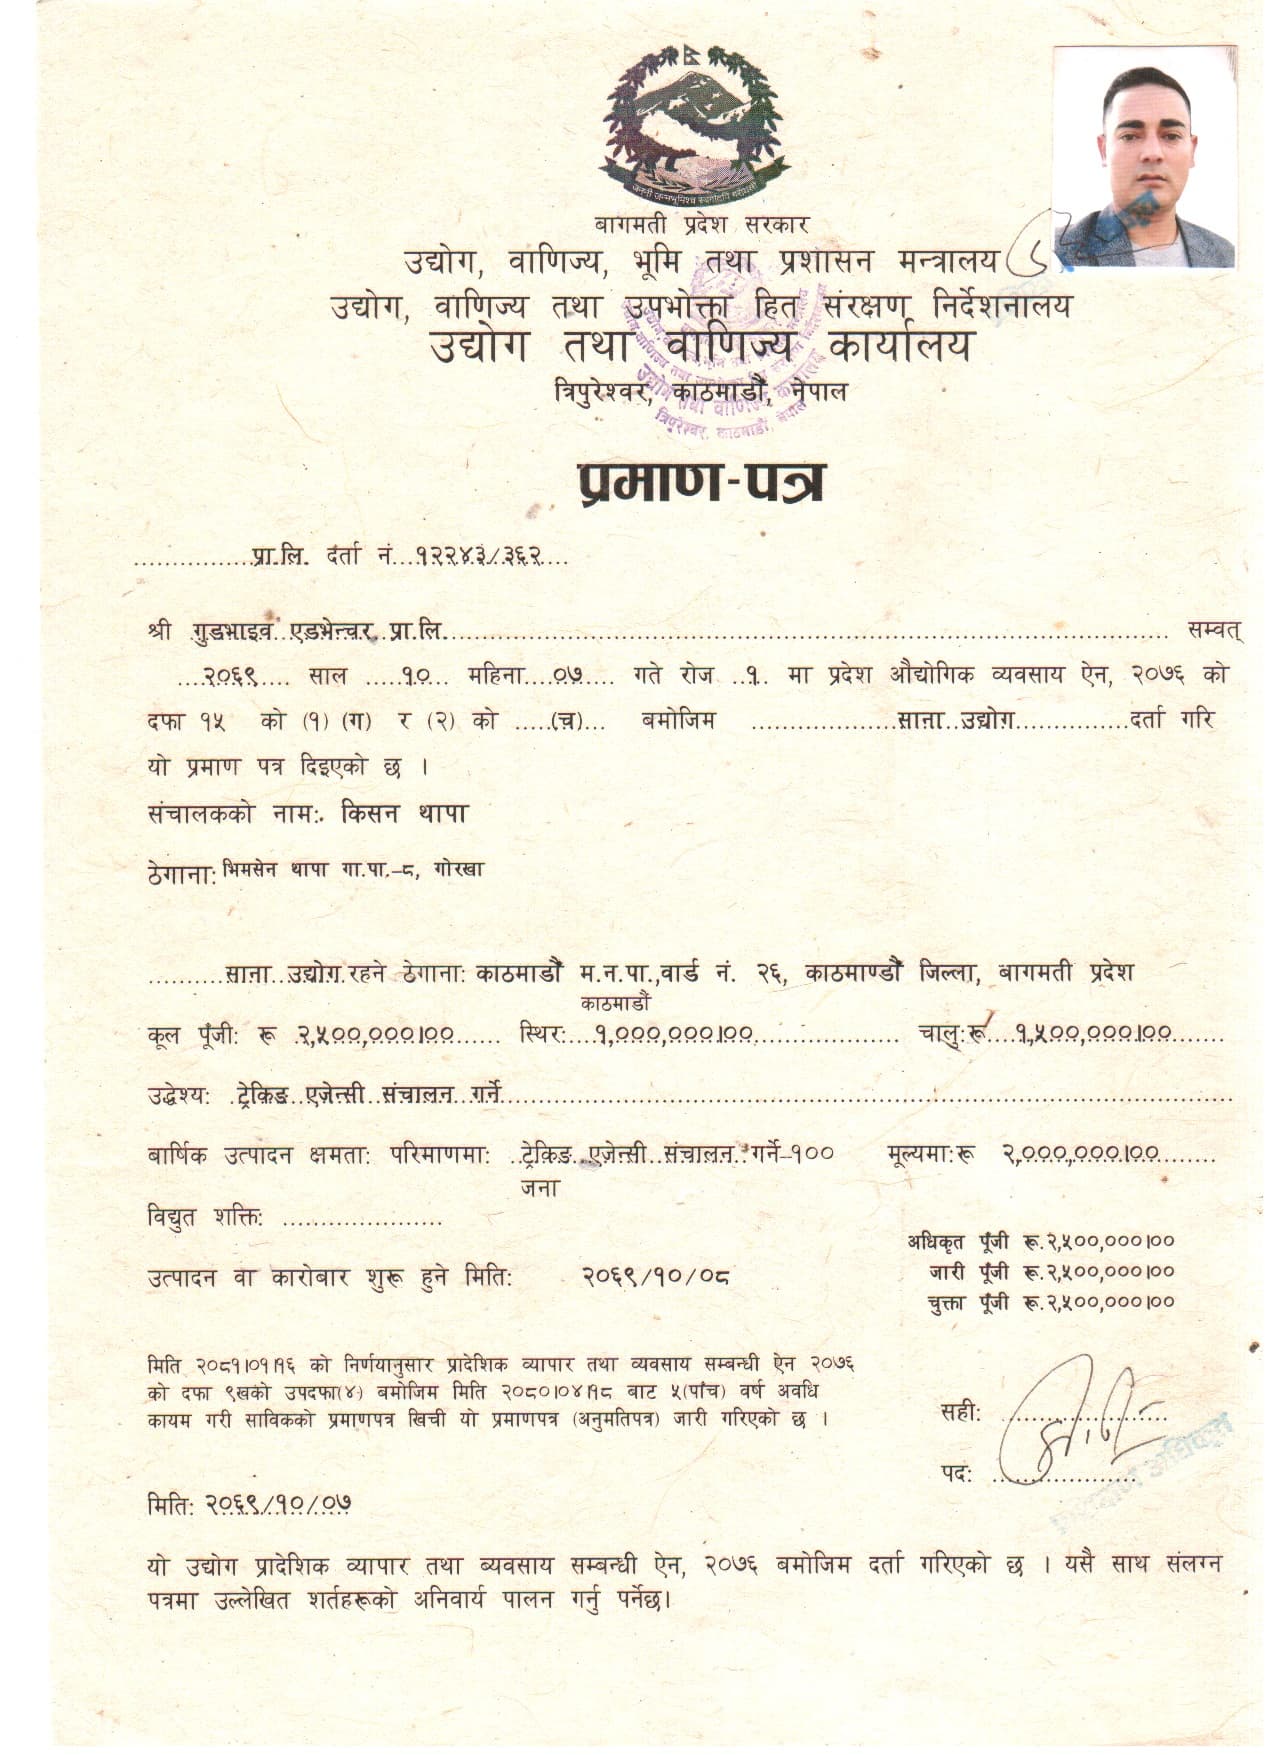 जननी जन्मभूमिश्च स्वर्गादपि गरीयसी
बागमती प्रदेश सरकार
उद्योग, वाणिज्य, भूमि तथा प्रशासन मन्त्रालय
उद्योग, वाणिज्य तथा उपभोक्ता हित संरक्षण निर्देशनालय
उद्योग तथा वाणिज्य कार्यालय
त्रिपुरेश्वर, काठमाडौं, नेपाल
उद्योग तथा वाणिज्य कार्यालय
त्रिपुरेश्वर, काठमाडौं, नेपाल
प्रमाण-पत्र
..................प्रा.लि. दर्ता नं...१२२४३/३६२....
श्री गुडभाइव एडभेन्चर प्रा.लि........................................ सम्वत्
....२०६९.... साल .....१०... महिना....०७.... गते रोज ..१. मा प्रदेश औद्योगिक व्यवसाय ऐन, २०७६ को
दफा १५ को (१) (ग) र (२) को .....(च)... बमोजिम ......................साना उद्योग................दर्ता गरि
यो प्रमाण पत्र दिइएको छ ।
संचालकको नामः. किसन थापा
ठेगानाः भिमसेन थापा गा.पा.-८, गोरखा
...........साना उद्योग रहने ठेगानाः काठमाडौं म.न.पा.,वार्ड नं. २६, काठमाण्डौं जिल्ला, बागमती प्रदेश
काठमाडौं
कूल पूँजीः रू २,५००,०००।००...... स्थिरः...१,०००,०००।००.................. चालुःरू...१,५००,०००।००.......
उद्धेश्यः ट्रेकिङ एजेन्सी संचालन गर्ने........................................
बार्षिक उत्पादन क्षमताः परिमाणमाः ..ट्रेकिङ एजेन्सी संचालन गर्ने-१०० मूल्यमाःरू २,०००,०००।००.......
जना
विद्युत शक्तिः .....................
अधिकृत पूँजी रू.२,५००,०००।००
जारी पूँजी रू.२,५००,०००।००
चुक्ता पूँजी रू.२,५००,०००।००
उत्पादन वा कारोबार शुरू हुने मितिः २०६९/१०/०८
मिति २०८१।०१।१६ को निर्णयानुसार प्रादेशिक व्यापार तथा व्यवसाय सम्बन्धी ऐन २०७६
को दफा ९खको उपदफा(४) बमोजिम मिति २०८०।०४।१८ बाट ५(पांच) वर्ष अवधि
कायम गरी साविकको प्रमाणपत्र खिची यो प्रमाणपत्र (अनुमतिपत्र) जारी गरिएको छ ।
सहीः .....................
पदः ..................
मितिः २०६९/१०/०७
यो उद्योग प्रादेशिक व्यापार तथा ब्यवसाय सम्बन्धी ऐन, २०७६ बमोजिम दर्ता गरिएको छ । यसै साथ संलग्न
पत्रमा उल्लेखित शर्तहरूको अनिवार्य पालन गर्नु पर्नेछ।